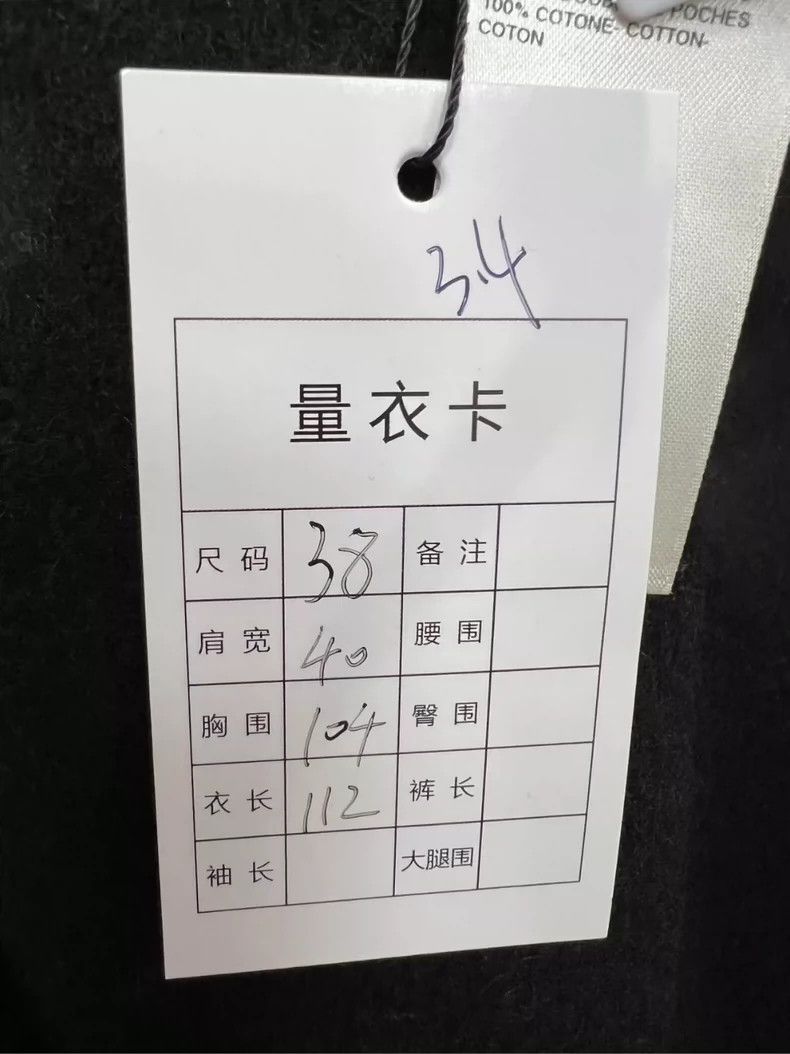 POCHES
100% COTONE- COTTON-
COTON
3.4
量衣卡
尺码 38 备注
肩宽 40 腰围
胸围 104 臀围
衣长 112 裤长
袖长 大腿围